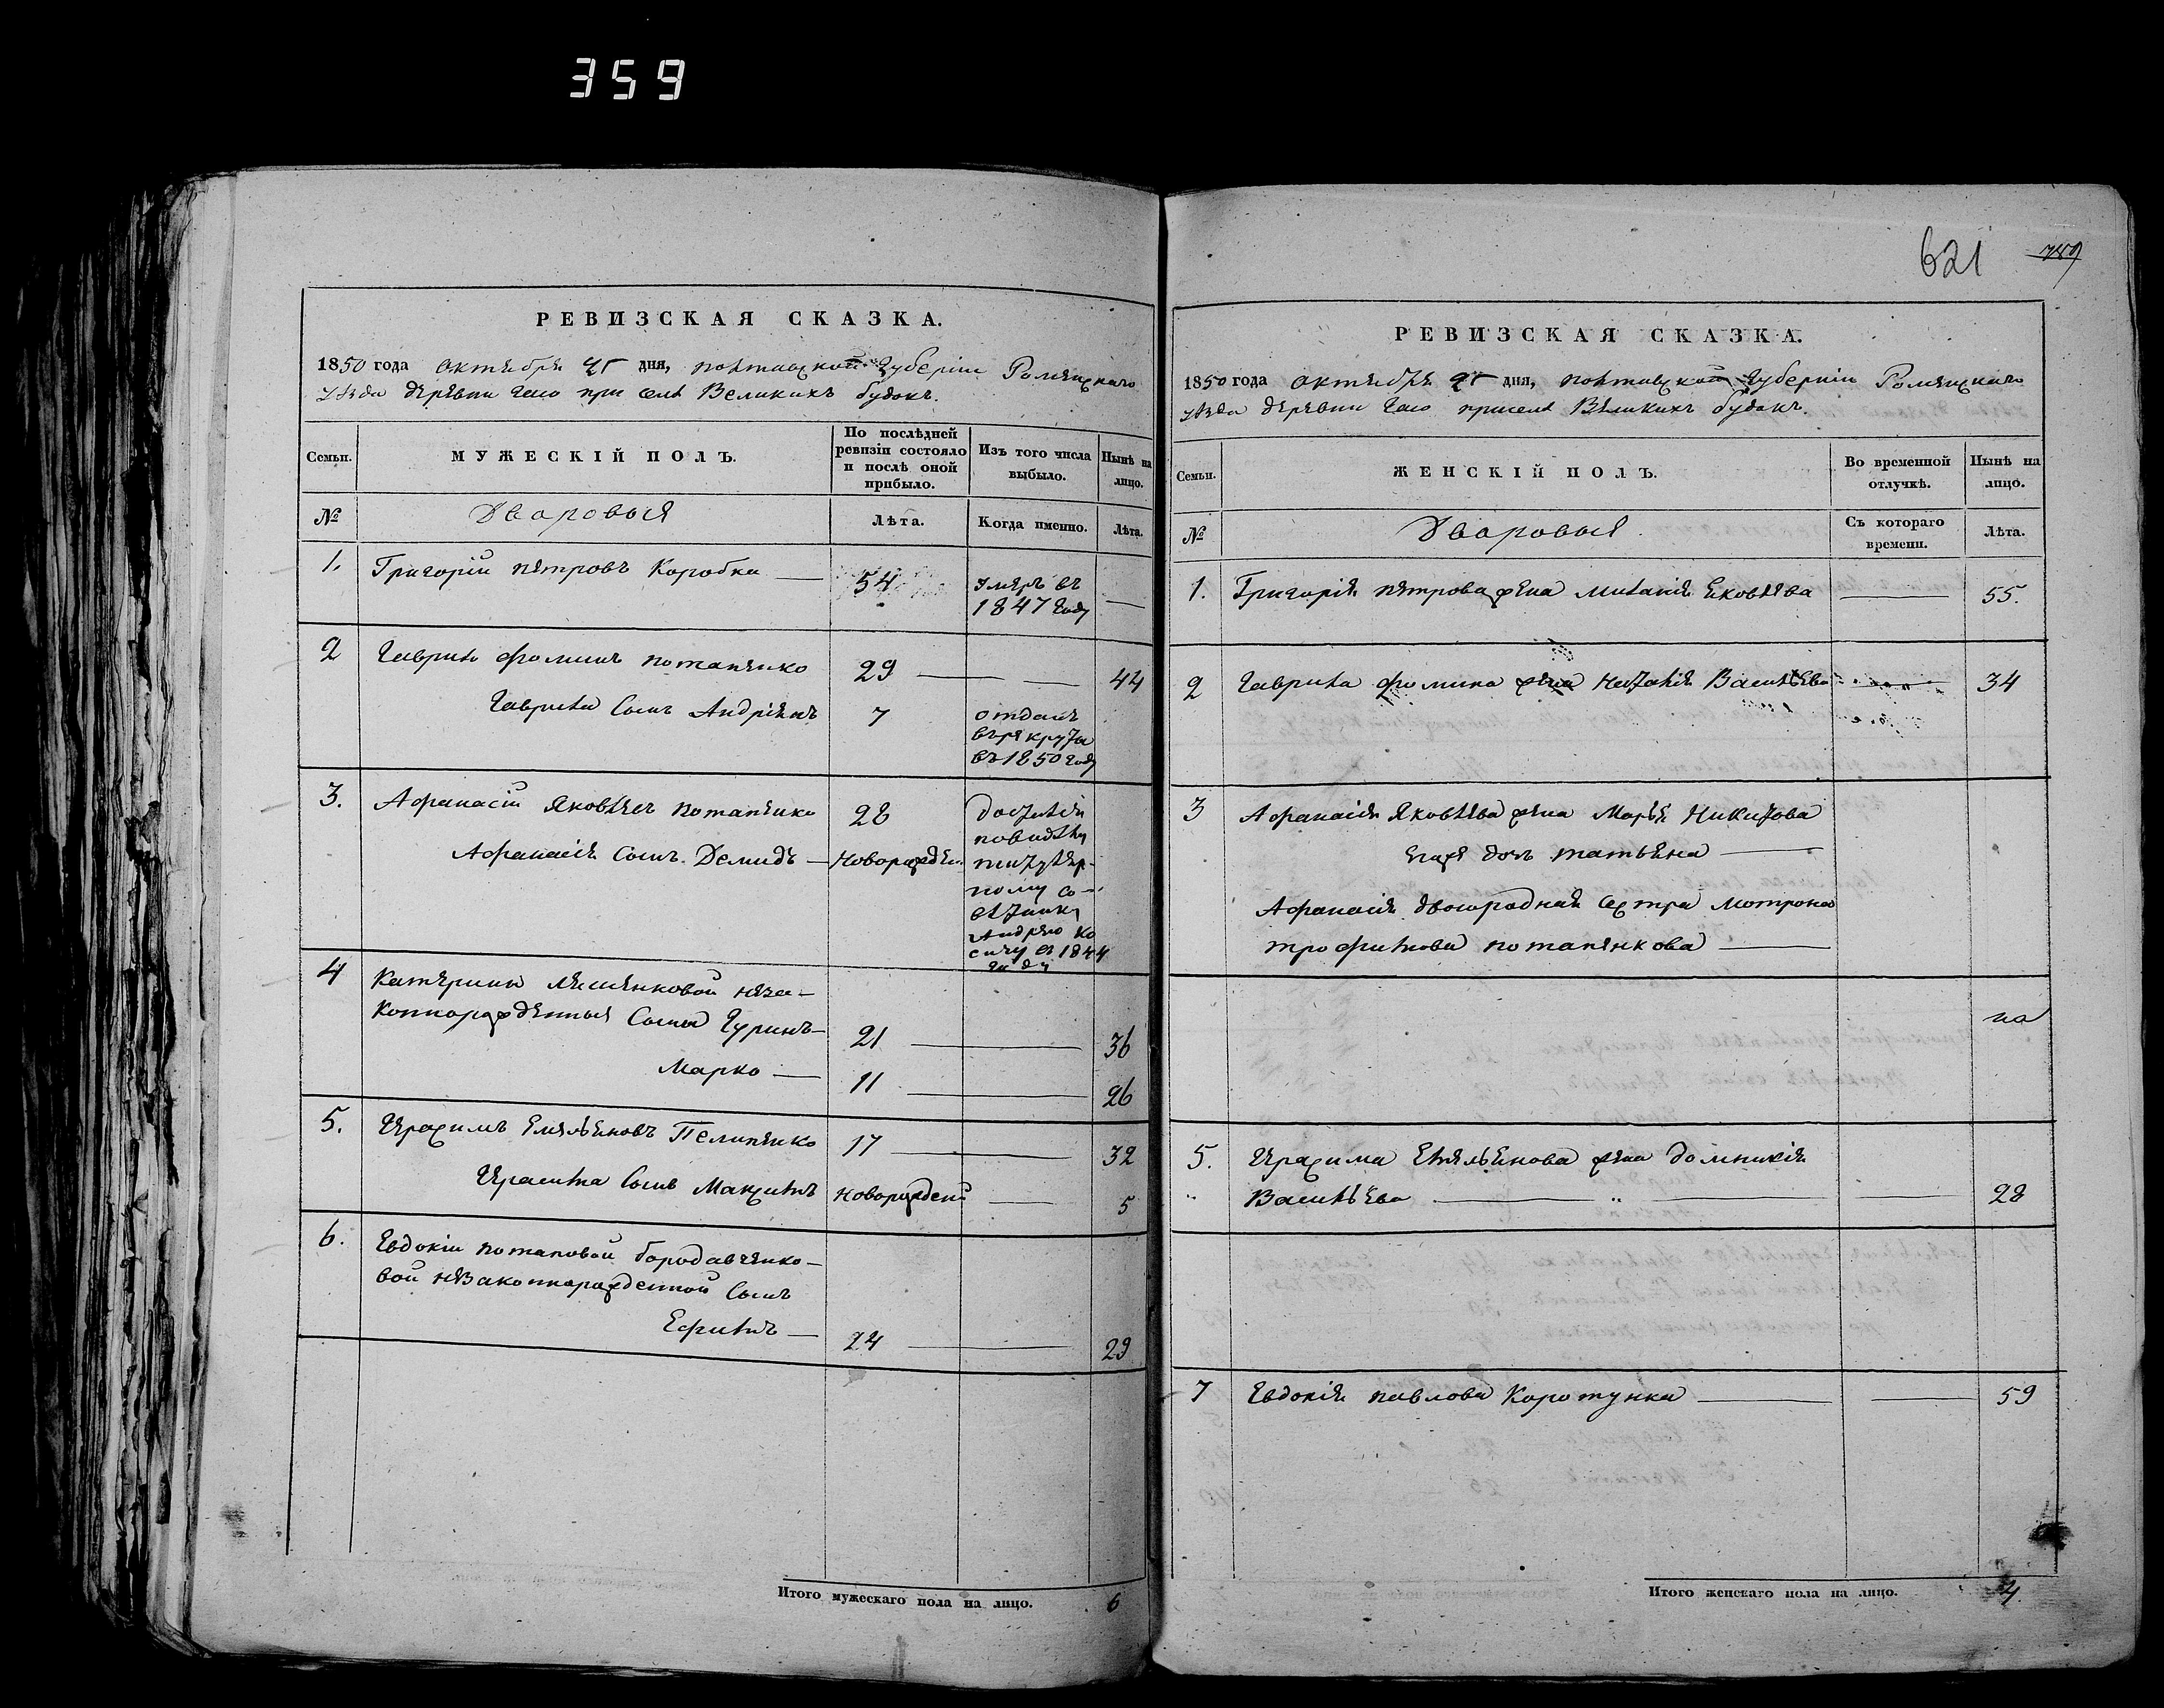 359
РЕВИЗСКАЯ СКАЗКА.
1850 года октября 25 дня, полтавской губерніи Роменского
уѣзда деревни Гаю при селѣ Великихъ будокъ.
Семьи.
МУЖЕСКІЙ ПОЛЪ.
По послѣдней ревизіи состояло и послѣ оной прибыло.
Изъ того числа выбыло.
Нынѣ на лицо.
№
Дворовыя
Лѣта.
Когда именно.
Лѣта.
1. Григорій петровъ Коробка — 54 умеръ въ
1847 году —
2 Гаврило фоминъ потапенко 29 — — 44
Гаврила Сынъ Андріянъ 7 отданъ
въ рекруты
въ 1850 году
3. Афанасій Яковлевъ потапенко 28 досталися
по владѣнію
титуляр-
ному со-
вѣтнику
Андрею Ко
сичу въ 1844
году
Афанасія Сынъ Демидъ — новорожден.
4 Катерины Лешенковой неза-
коннорожденныя Сыны Гуринъ — 21 — 36
Марко — 11 — 26
5. Герасимъ Емельяновъ Пелипенко 17 — 32
Герасима Сынъ Максимъ новорожденъ — 5
6. Евдокіи потаповой бородавченко-
вой незаконнорожденной Сынъ
Ефимъ — 24 — 29
Итого мужескаго пола на лицо. 6
621 789
РЕВИЗСКАЯ СКАЗКА.
1850 года октября 25 дня, полтавской губерніи Роменскаго
уѣзда деревни Гаю при селѣ Великихъ будокъ.
Семьи.
ЖЕНСКІЙ ПОЛЪ.
Во временной отлучкѣ.
Нынѣ на лицо.
№
Дворовыя
Съ котораго времени.
Лѣта.
1. Григорія петрова жена Миланія Яковлева — 55.
2 Гаврила фомина жена Наталія Васильева — 34
3 Афанасія Яковлева жена Марья Никитова
Егоже дочь татьяна —
Афанасія двоюродная сестра Мотрона
трофимова потапенкова —
на
5. Герасима Емельянова жена домникія
" Васильева — " — 28
7 Евдокія павлова Коротунка — — 59
Итого женскаго пола на лицо. 4.